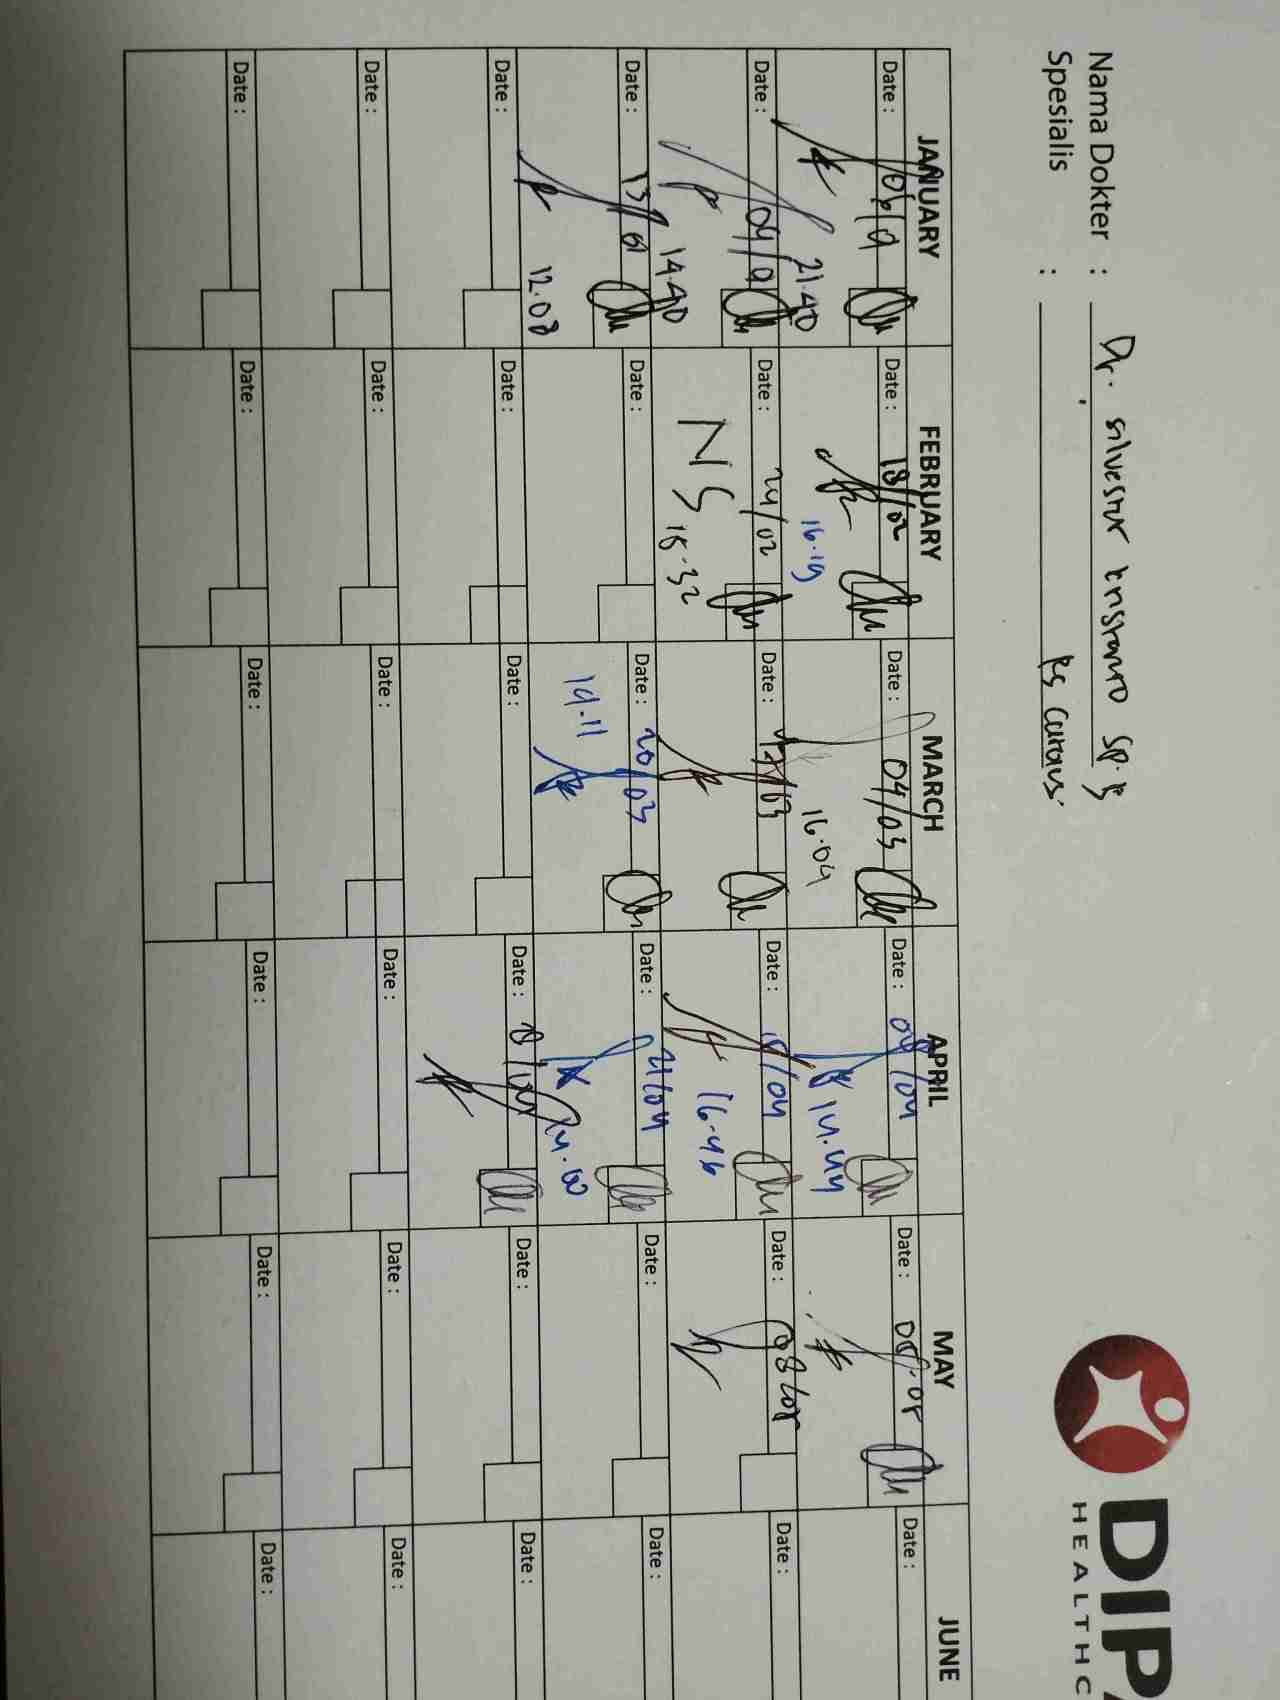 DIP
HEALTHC
Nama Dokter :
Dr. silvester kristanto sp. B
Spesialis :
RS Carolus.
JANUARY FEBRUARY MARCH APRIL MAY JUNE
Date : Date : 18/02 Date : 04/03 Date : 08/04 Date : Date :
21.40 16.19 16.04 14.44
Date : Date : 24/02 Date : Date : Date : 08/05 Date :
14.40 NS 18.32 16.46
Date : 13/01 Date : Date : 20/03 Date : 21/04 Date : Date :
12.08 19.11
Date : Date : Date : Date : Date : Date :
Date : Date : Date : Date : Date : Date :
Date : Date : Date : Date : Date : Date :